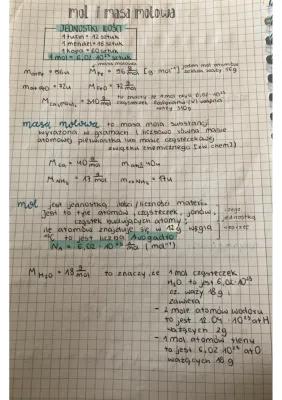 mol i masa molowa
JEDNOSTKI ILOŚCI
1 tuzin = 12 sztuk
1 mendel = 15 sztuk
1 kopa = 60 sztuk
1 mol = 6,02 · 10²³ sztuk
masa molowa
m at Fe = 56u M Fe = 56 g/mol [g · mol⁻¹] jeden mol atomów żelaza waży 56g
= 72u M FeO = 72 g/mol
M Ca₃(PO₄)₂ = 310 g/mol to znaczy że 1 mol czyli 6,02 · 10²³ cząsteczek fosforanu (V) wapnia waży 310g
masa molowa to masa mola substancji
wyrażona w gramach i liczbowo równa masie
atomowej pierwiastka lub masie cząsteczkowej
związku chemicznego [zw. chem.]
M Ca = 40 g/mol m at Ca = 40u
M NH₃ = 17 g/mol m cz NH₃ = 17u
mol jest jednostką ilości / liczności materii.
Jest to tyle atomów, cząsteczek, jonów,
cząstek budujących atomy;
ile atomów znajduje się w 12g węgla
¹²C to jest liczba Avogadro
N A = 6,02 · 10²³ 1/mol (mol⁻¹)
M H₂O = 18 g/mol to znaczy, że 1 mol cząsteczek
H₂O to jest 6,02 · 10²³
cz. waży 18 g
zawiera
- 2 mole atomów wodoru
to jest 12,04 · 10²³ at H
ważących 2g
- 1 mol atomów tlenu
to jest 6,02 · 10²³ at O
ważących 16 g